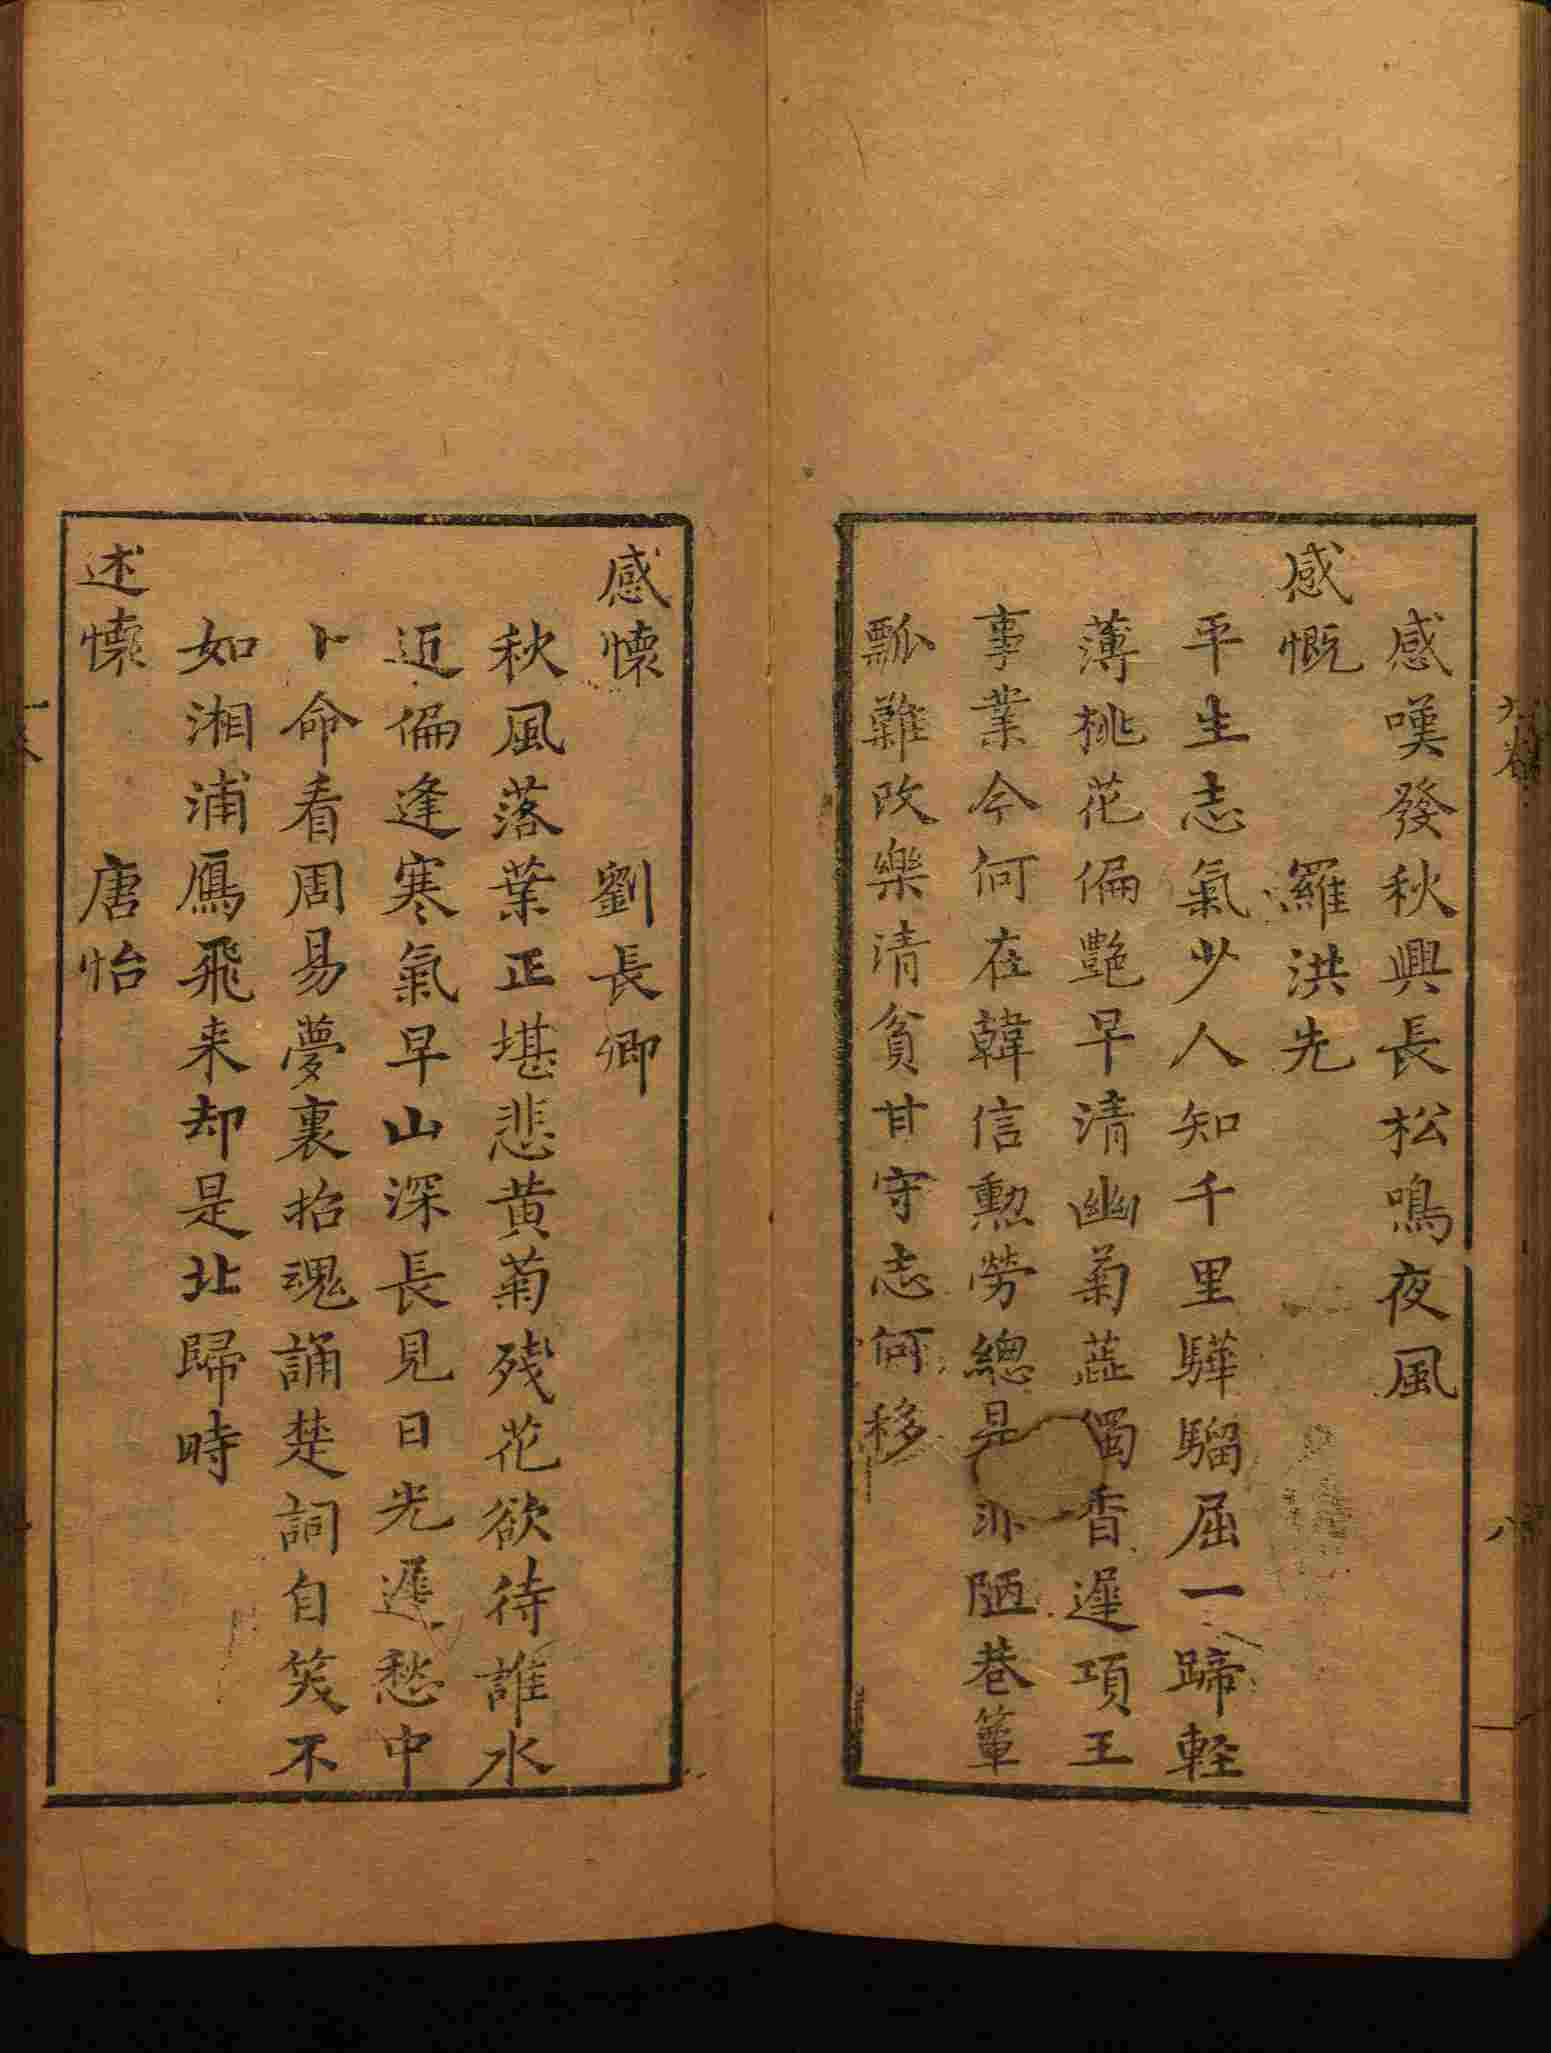 感嘆發秋興長松鳴夜風
感慨　羅洪先
平生志氣少人知千里驊騮屈一蹄軽
薄桃花偏艷早清幽菊蕋獨香遲項王
事業今何在韓信勲勞總是 陋巷簞
瓢難改樂清貧甘守志何移
感懷　劉長卿
秋風落葉正堪悲黄菊殘花欲待誰水
近偏逢寒氣早山深長見日光遲愁中
卜命看周易夢裏招魂誦楚詞自笑不
如湘浦鴈飛来却是北歸時
述懷　唐怡